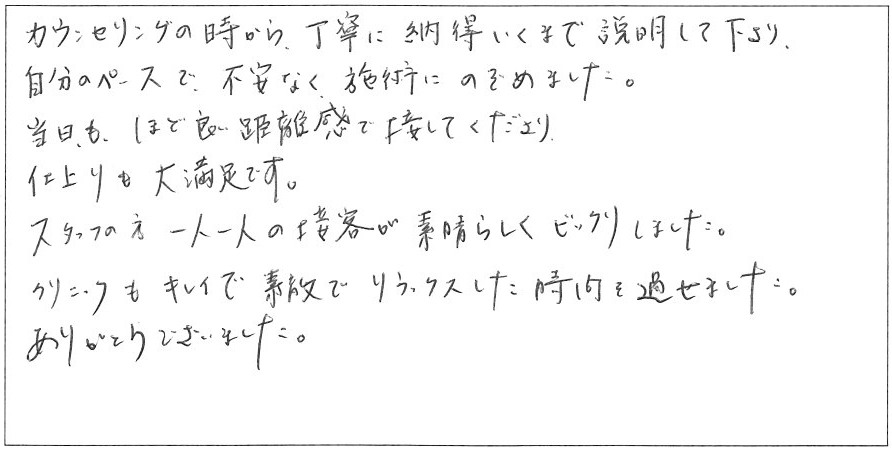 カウンセリングの時から、丁寧に納得いくまで説明して下さり、
自分のペースで、不安なく、施術にのぞめました。
当日も、ほど良い距離感で接してくださり、
仕上りも大満足です。
スタッフの方一人一人の接客が素晴らしくビックリしました。
クリニックもキレイで素敵でリラックスした時間を過せました。
ありがとうございました。